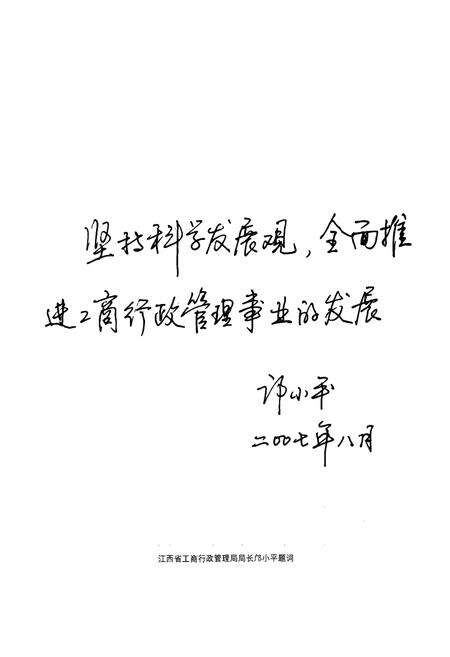 坚持科学发展观，全面推
进工商行政管理事业的发展
邝小平
二00七年八月
江西省工商行政管理局局长邝小平题词